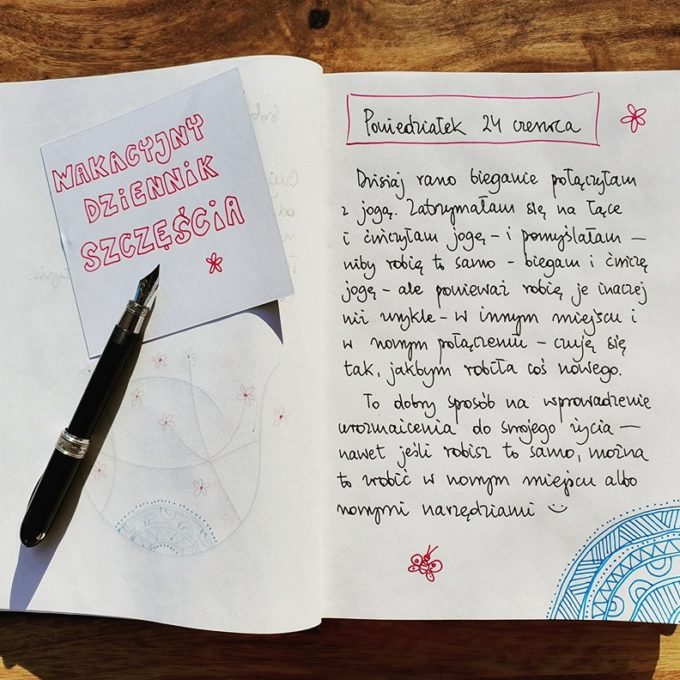 WAKACYJNY
DZIENNIK
SZCZĘŚCIA
Poniedziałek 24 czerwca
Dzisiaj rano bieganie połączyłam
z jogą. Zatrzymałam się na łące
i ćwiczyłam jogę – i pomyślałam –
niby robię to samo – biegam i ćwiczę
jogę – ale ponieważ robię je inaczej
niż zwykle – w innym miejscu i
w nowym połączeniu – czuję się
tak, jakbym robiła coś nowego.
To dobry sposób na wprowadzenie
urozmaicenia do swojego życia –
nawet jeśli robisz to samo, można
to zrobić w nowym miejscu albo
nowymi narzędziami